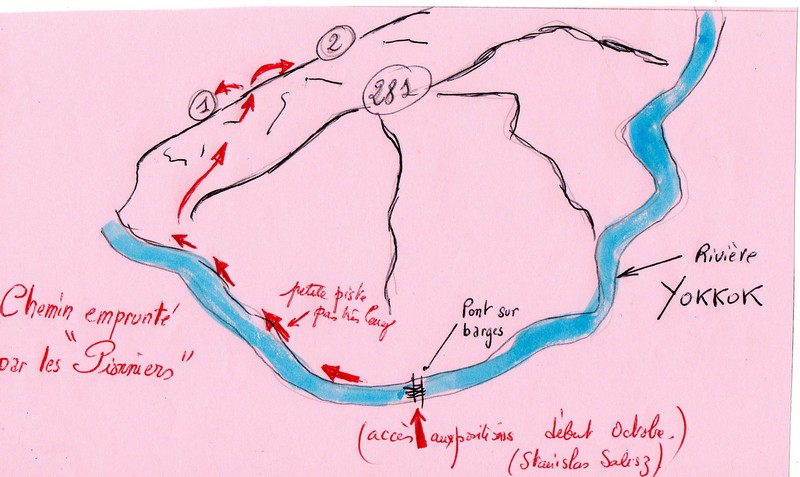 2
1
281
Rivière
YOKKOK
petite piste
pas très
Pont sur
barges
Chemin emprunté
par les "Pionniers"
(accès aux positions début Octobre.)
(Stanislas Salisz)